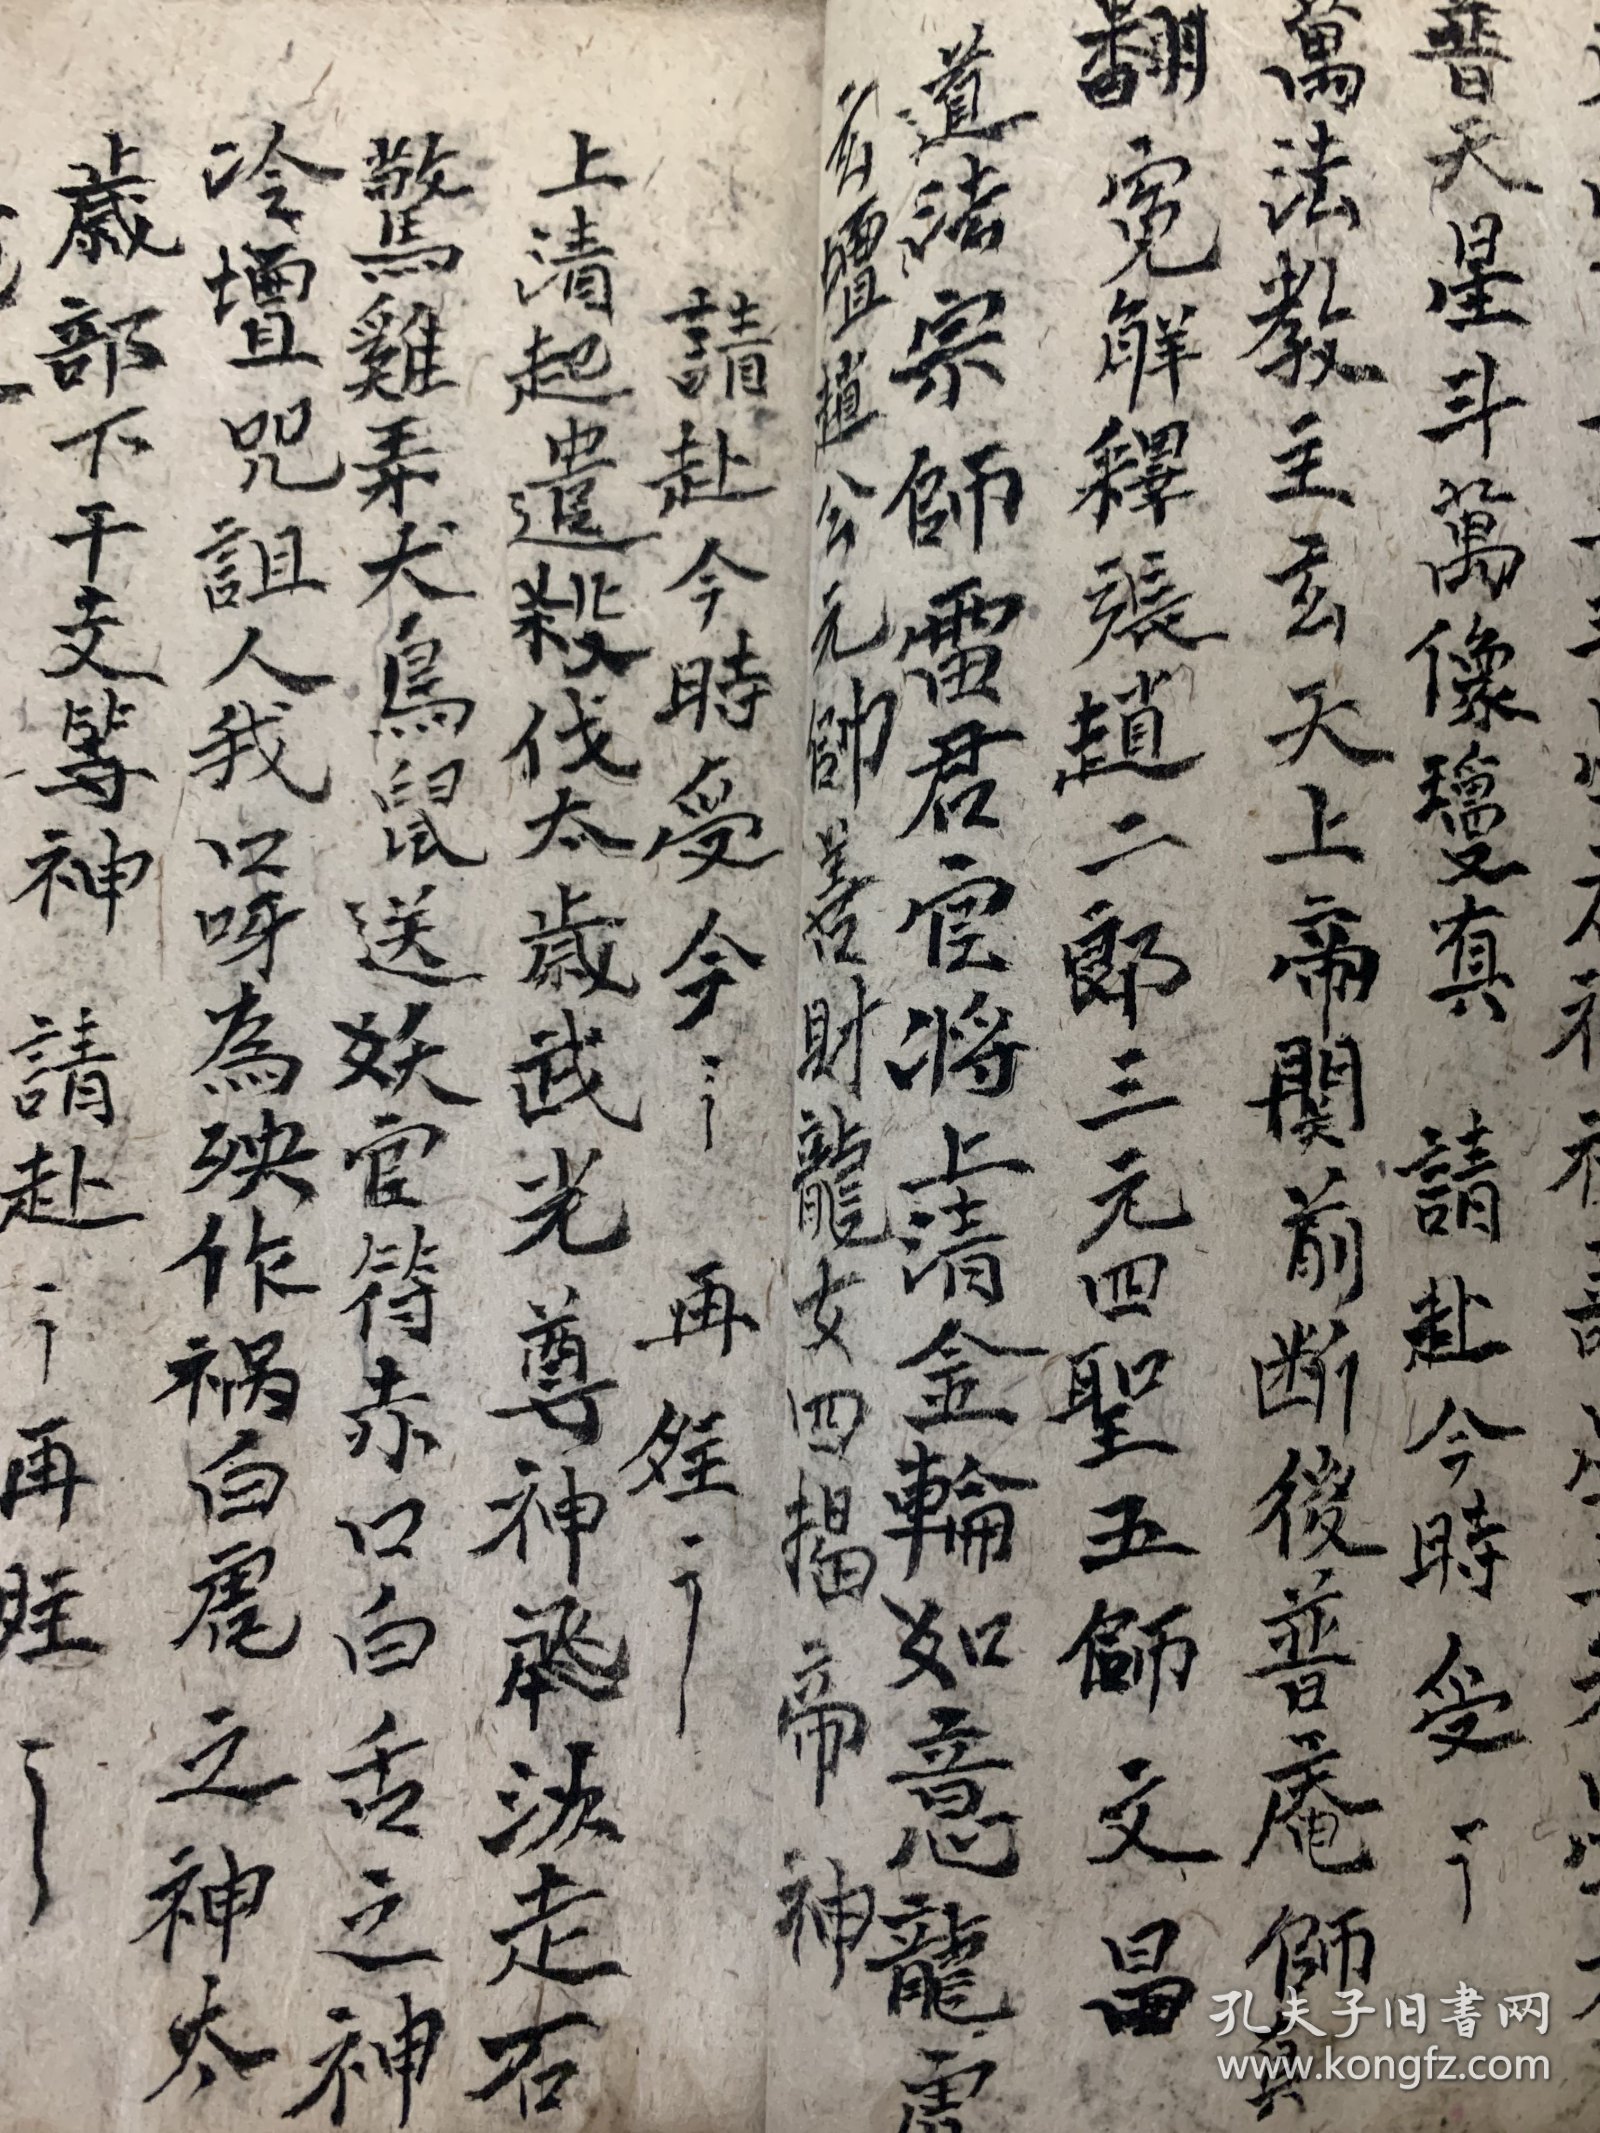 普天星斗萬像 真 請赴今時受
萬法教主玄天上帝関前断後普庵師真
翻冤解釋張趙二郎三元四聖五師文昌
道法宗師雷君官将上清金輪如意龍雷
玄壇趙公元帥善財龍女四揭帝神
請赴今時受今 再
上清起遣殺伐太歲武光尊神飛沙走石
驚雞弄犬鳥鼠送妖官符赤口白舌之神
冷壇咒詛人我口呀為殃作禍白虎之神太
歲部下干支等神 請赴 再
孔夫子旧書网
www.kongfz.com